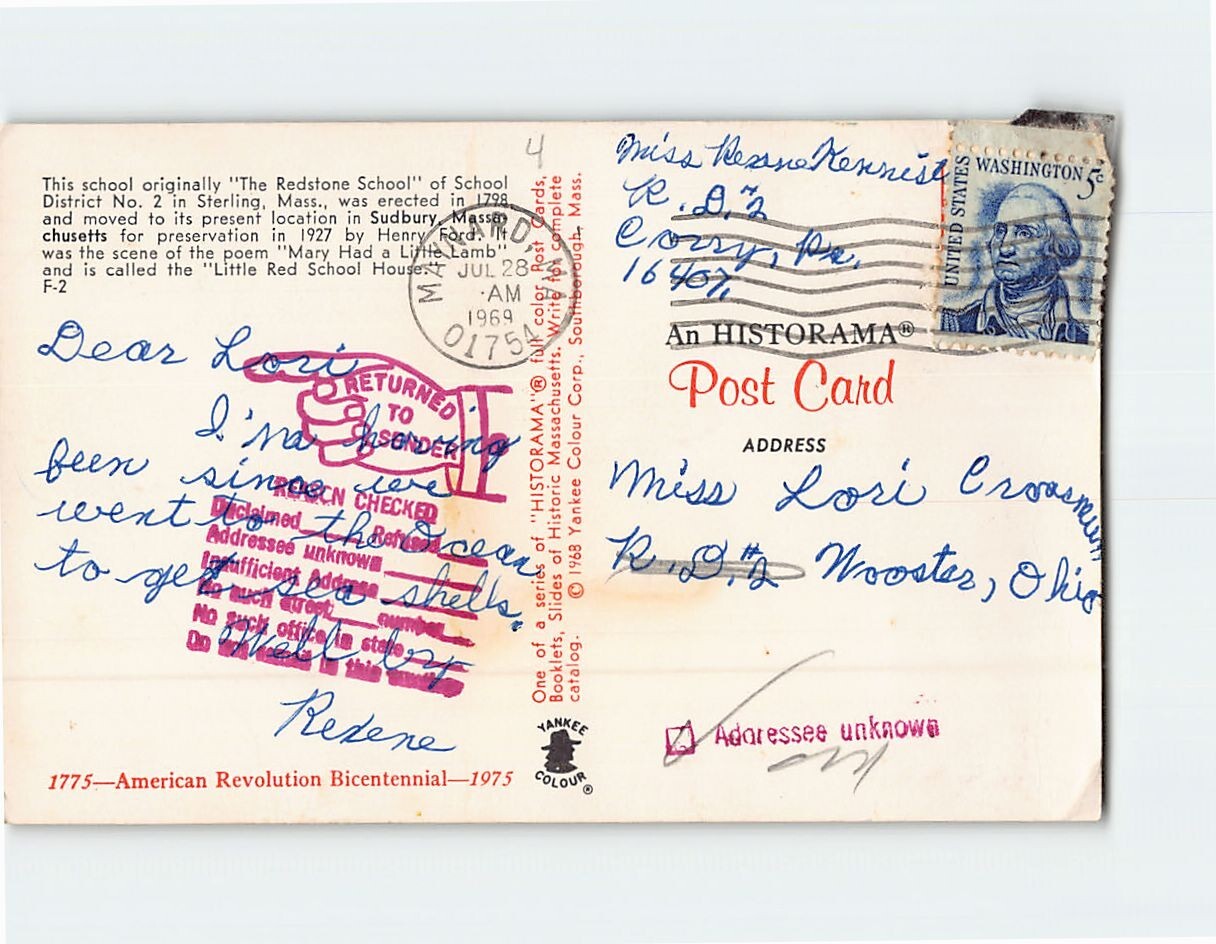 4
This school originally "The Redstone School" of School
District No. 2 in Sterling, Mass., was erected in 1798
and moved to its present location in Sudbury, Massa-
chusetts for preservation in 1927 by Henry Ford. It
was the scene of the poem "Mary Had a Little Lamb"
and is called the "Little Red School House."
F-2
MAYNARD, MA
JUL 28
AM
1969
01754
Dear Lori
I'ma having
been since we
went to the Ocean
to get sea shells.
Well by
Rexene
RETURNED
TO
SENDER
REASON CHECKED
Unclaimed Refused
Addressee unknown
Insufficient Address
No such street number
No such office in state
Do not in this
1775—American Revolution Bicentennial—1975
One of a series of "HISTORAMA"® full color Post Cards,
Booklets, Slides of Historic Massachusetts. Write for complete
catalog. © 1968 Yankee Colour Corp., Southborough, Mass.
YANKEE
COLOUR®
Miss Rexene
R.D.#2
Corry, Pa.
16407
UNITED STATES
WASHINGTON 5c
An HISTORAMA®
Post Card
ADDRESS
Miss Lori
R.D.#2 Wooster, Ohio
Addressee unknown